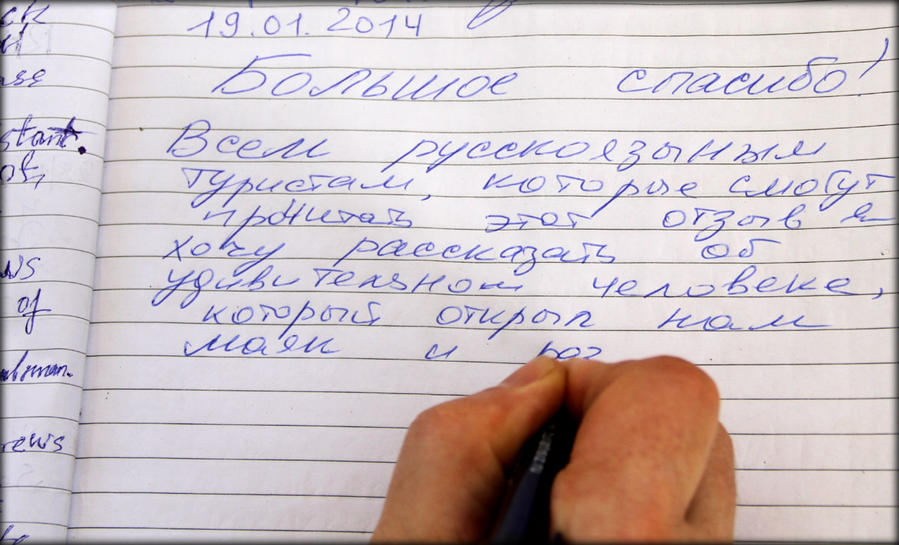 19.01.2014
Большое спасибо!
Всем русскоязыным
туристам, которые смогут
прочитать этот отзыв я
хочу рассказать об
удивительном человеке,
который открыл нам
маяк и
ck
ase
start.
of,
ws
of
rews